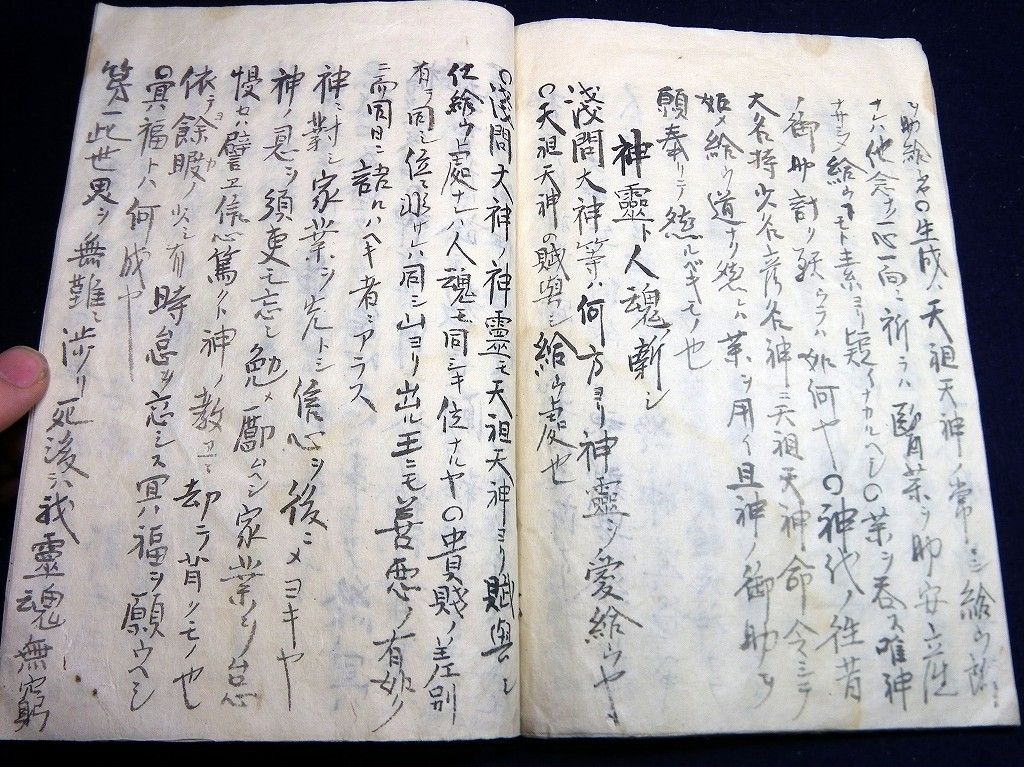 助給○生成ハ天祖天神ノ常ニシ給ウ
ナレハ他念ナク一心一向ニ祈ラハ医薬ラ助安立産
ナサシメ給ウヿモト素ヨリ疑イナカルヘシ○薬シ呑ス唯神
ノ御助計リ頼ウラハ如何ヤ○神代ノ往昔
大名持少名彦名神ニ天祖天神命令シテ
始メ給ウ道ナリ然レハ薬シ用イ且神ノ御助シ
願奉リテ然ルベキモノ也
神靈ト人魂ノ斬シ
浅間大神等ハ何方ヨリ神靈シ愛給ウヤ
○天祖天神の賦與シ給ウ處也
○浅間大神ノ神靈モ天祖天神ヨリ賦與シ
仕給ウ處ナレハ人魂モ同シキ位ナルヤ○貴賎ノ差別
有ラ同シ位て非ケレハ同シ山ヨリ出ル玉ニモ善悪ノ有如ク
ニ而同日ニ語ルハヘキ者ニアラス
神ニ對シ家業シ先トシ信心シ後ニメヨキヤ
神ノ見シ須更モ忘レ勉メ勵ムヘシ家業シ怠
慢セハ譬エ信心篤クト神ノ教エニ却ラ背クモノ也
依テ餘暇ノ少シ有時怠ラ忘レス冥ハ福シ願ウヘシ
○冥福トハ何成ヤ
第一此世界シ無難ニ渉リ死後ハ我靈魂無窮